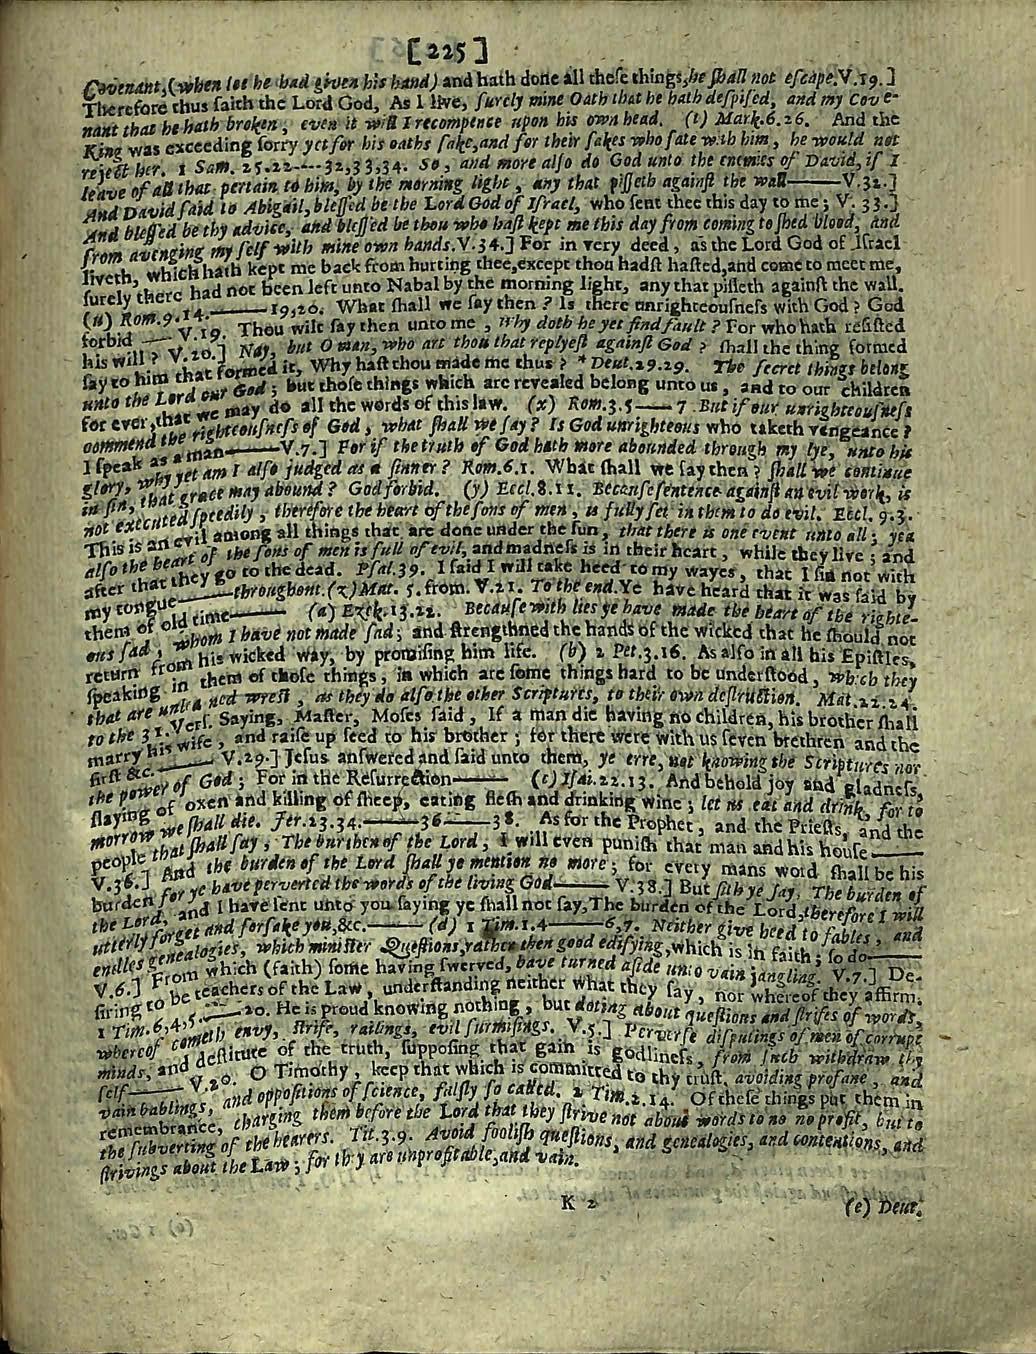 [225]
Covenant,(when loe he had given his hand) and hath done all theſe things,he ſhall not eſcape.V.19.]
Therefore thus ſaith the Lord God, As I live, ſurely mine Oath that he hath deſpiſed, and my Cove-
nant that he hath broken, even it will I recompence upon his own head. (t) Mark.6.26. And the
King was exceeding ſorry yet for his oaths ſake,and for their ſakes who ſate with him, he would not
reject her. 1 Sam. 25.22---32,33,34. So, and more alſo do God unto the enemies of David, if I
leave of all that pertain to him, by the morning light, any that piſſeth againſt the wall——V.32.]
And David ſaid to Abigail, bleſſed be the Lord God of Iſrael, who ſent thee this day to me; V. 33.]
And bleſſed be thy advice, and bleſſed be thou who haſt kept me this day from coming to ſhed blood, and
from avenging my ſelf with mine own hands.V.34.] For in very deed, as the Lord God of Iſrael
liveth, which hath kept me back from hurting thee,except thou hadſt haſted,and come to meet me,
ſurely there had not been left unto Nabal by the morning light, any that piſſeth againſt the wall.
(u) Rom.9.14.——19,20. What ſhall we ſay then? Is there unrighteouſneſs with God? God
forbid —— V.19. Thou wilt ſay then unto me, Why doth he yet find fault? For who hath reſiſted
his will? V.20.] Nay, but O man, who art thou that replyeſt againſt God? ſhall the thing formed
ſay to him that formed it, Why haſt thou made me thus? * Deut.29.29. The ſecret things belong
unto the Lord our God; but thoſe things which are revealed belong unto us, and to our children
for ever,that we may do all the words of this law. (x) Rom.3.5——7 .But if our unrighteouſneſs
commend the righteouſneſs of God, what ſhall we ſay? Is God unrighteous who taketh vengeance?
I ſpeak as a man——V.7.] For if the truth of God hath more abounded through my lye, unto his
glory, why yet am I alſo judged as a ſinner? Rom.6.1. What ſhall we ſay then? ſhall we continue
in ſin, that grace may abound? God forbid. (y) Eccl.8.11. Becauſe ſentence againſt an evil work, is
not executed ſpeedily, therefore the heart of the ſons of men, is fully ſet in them to do evil. Eccl. 9.3.
This is an evil among all things that are done under the ſun, that there is one event unto all; yea
alſo the heart of the ſons of men is full of evil, and madneſs is in their heart, while they live; and
after that they go to the dead. Pſal.39. I ſaid I will take heed to my wayes, that I ſin not with
my tongue——throughout.(z) Mat. 5. from. V.21. To the end. Ye have heard that it was ſaid by
them of old time—— (a) Ezek.13.22. Becauſe with lies ye have made the heart of the righte-
ous ſad, whom I have not made ſad; and ſtrengthned the hands of the wicked that he ſhould not
return from his wicked way, by promiſing him life. (b) 2 Pet.3.16. As alſo in all his Epiſtles,
ſpeaking in them of thoſe things, in which are ſome things hard to be underſtood, which they
that are unlearned wreſt, as they do alſo the other Scriptures, to their own deſtruction. Mat.22.24.
to the 31.Verſ. Saying, Maſter, Moſes ſaid, If a man die having no children, his brother ſhall
marry his wife, and raiſe up ſeed to his brother; for there were with us ſeven brethren and the
firſt &c.—— V.29.] Jeſus anſwered and ſaid unto them, ye erre, not knowing the Scriptures nor
the power of God; For in the Reſurrection—— (c) Iſai.22.13. And behold joy and gladneſs,
ſlaying of oxen and killing of ſheep, eating fleſh and drinking wine; let us eat and drink, for to
morrow we ſhall die. Jer.23.34.——36——38. As for the Prophet, and the Prieſts, and the
people that ſhall ſay, The burthen of the Lord, I will even puniſh that man and his houſe——
V.36.] And the burden of the Lord ſhall ye mention no more; for every mans word ſhall be his
burden for ye have perverted the words of the living God—— V.38.] But ſith ye ſay, The burden of
the Lord, and I have ſent unto you ſaying ye ſhall not ſay,The burden of the Lord,therefore I will
utterly forget and forſake you,&c.—— (d) 1 Tim.1.4——6,7. Neither give heed to fables, and
endles genealogies, which miniſter Queſtions,rather then good edifying,which is in faith; ſo do——
V.6.] From which (faith) ſome having ſwerved, have turned aſide unto vain jangling. V.7.] De-
ſiring to be teachers of the Law, underſtanding neither what they ſay, nor whereof they affirm.
1 Tim.6,4,5.——20. He is proud knowing nothing, but doting about queſtions and ſtrifes of words,
whereof cometh envy, ſtrife, railings, evil ſurmiſings. V.5.] Perverſe diſputings of men of corrupt
minds, and deſtitute of the truth, ſuppoſing that gain is godlineſs, from ſuch withdraw thy
ſelf—— V.20. O Timothy, keep that which is committed to thy truſt, avoiding profane, and
vain bablings, and oppoſitions of ſcience, falſly ſo called. 2 Tim.2.14. Of theſe things put them in
remembrance, charging them before the Lord that they ſtrive not about words to no no profit, but to
the ſubverting of the hearers. Tit.3.9. Avoid fooliſh queſtions, and genealogies, and contentions, and
ſtrivings about the Law; for they are unprofitable,and vain.
K 2
(e) Deut.